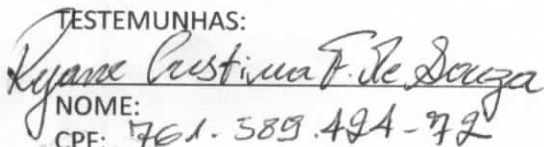 TESTEMUNHAS:
Ryane Cristina F. de Souza
NOME:
CPF: 761.589.494-72